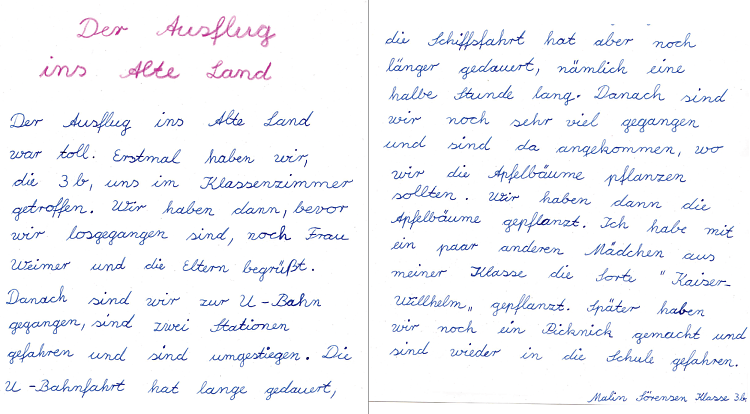 Der Ausflug
ins Alte Land
Der Ausflug ins Alte Land
war toll. Erstmal haben wir,
die 3b, uns im Klassenzimmer
getroffen. Wir haben dann, bevor
wir losgegangen sind, noch Frau
Weimer und die Eltern begrüßt.
Danach sind wir zur U-Bahn
gegangen, sind zwei Stationen
gefahren und sind umgestiegen. Die
U-Bahnfahrt hat lange gedauert,
die Schiffsfahrt hat aber noch
länger gedauert, nämlich eine
halbe Stunde lang. Danach sind
wir noch sehr viel gegangen
und sind da angekommen, wo
wir die Apfelbäume pflanzen
sollten. Wir haben dann die
Apfelbäume gepflanzt. Ich habe mit
ein paar anderen Mädchen aus
meiner Klasse die Sorte "Kaiser-
Willhelm„ gepflanzt. Später haben
wir noch ein Picknick gemacht und
sind wieder in die Schule gefahren.
Malin Sörensen Klasse 3b